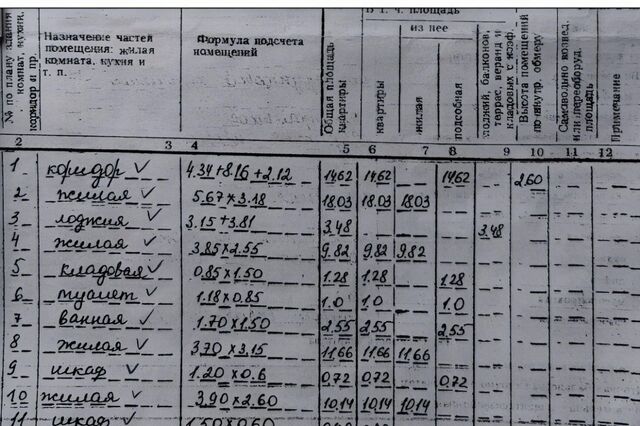 В т. ч. площадь
из нее
№ по плану здания комнат, кухни, коридор и пр.
Назначение частей помещения: жилая комната, кухня и т. п.
Формула подсчета помещений
Общая площадь квартиры
квартиры
жилая
подсобная
лоджий, балконов, террас, веранд и кладовых с коэф.
Высота помещений по внутр. обмеру
Самовольно возвед. или переоборуд. площадь
Примечание
2 3 4 5 6 7 8 9 10 11 12
1 коридор ✓ 4.34+8.16+2.12 14.62 14.62 — 14.62 2.60
2 жилая ✓ 5.67×3.18 18.03 18.03 18.03
3 лоджия ✓ 3.15+3.81 3.48 — — 3.48
4 жилая ✓ 3.85×2.55 9.82 9.82 9.82
5 кладовая ✓ 0.85×1.50 1.28 1.28 — 1.28
6 туалет ✓ 1.18×0.85 1.0 1.0 — 1.0
7 ванная ✓ 1.70×1.50 2.55 2.55 — 2.55
8 жилая ✓ 3.70×3.15 11.66 11.66 11.66
9 шкаф ✓ 1.20×0.6 0.72 0.72 — 0.72
10 жилая ✓ 3.90×2.60 10.14 10.14 10.14
11 шкаф ✓ 1.50×0.60